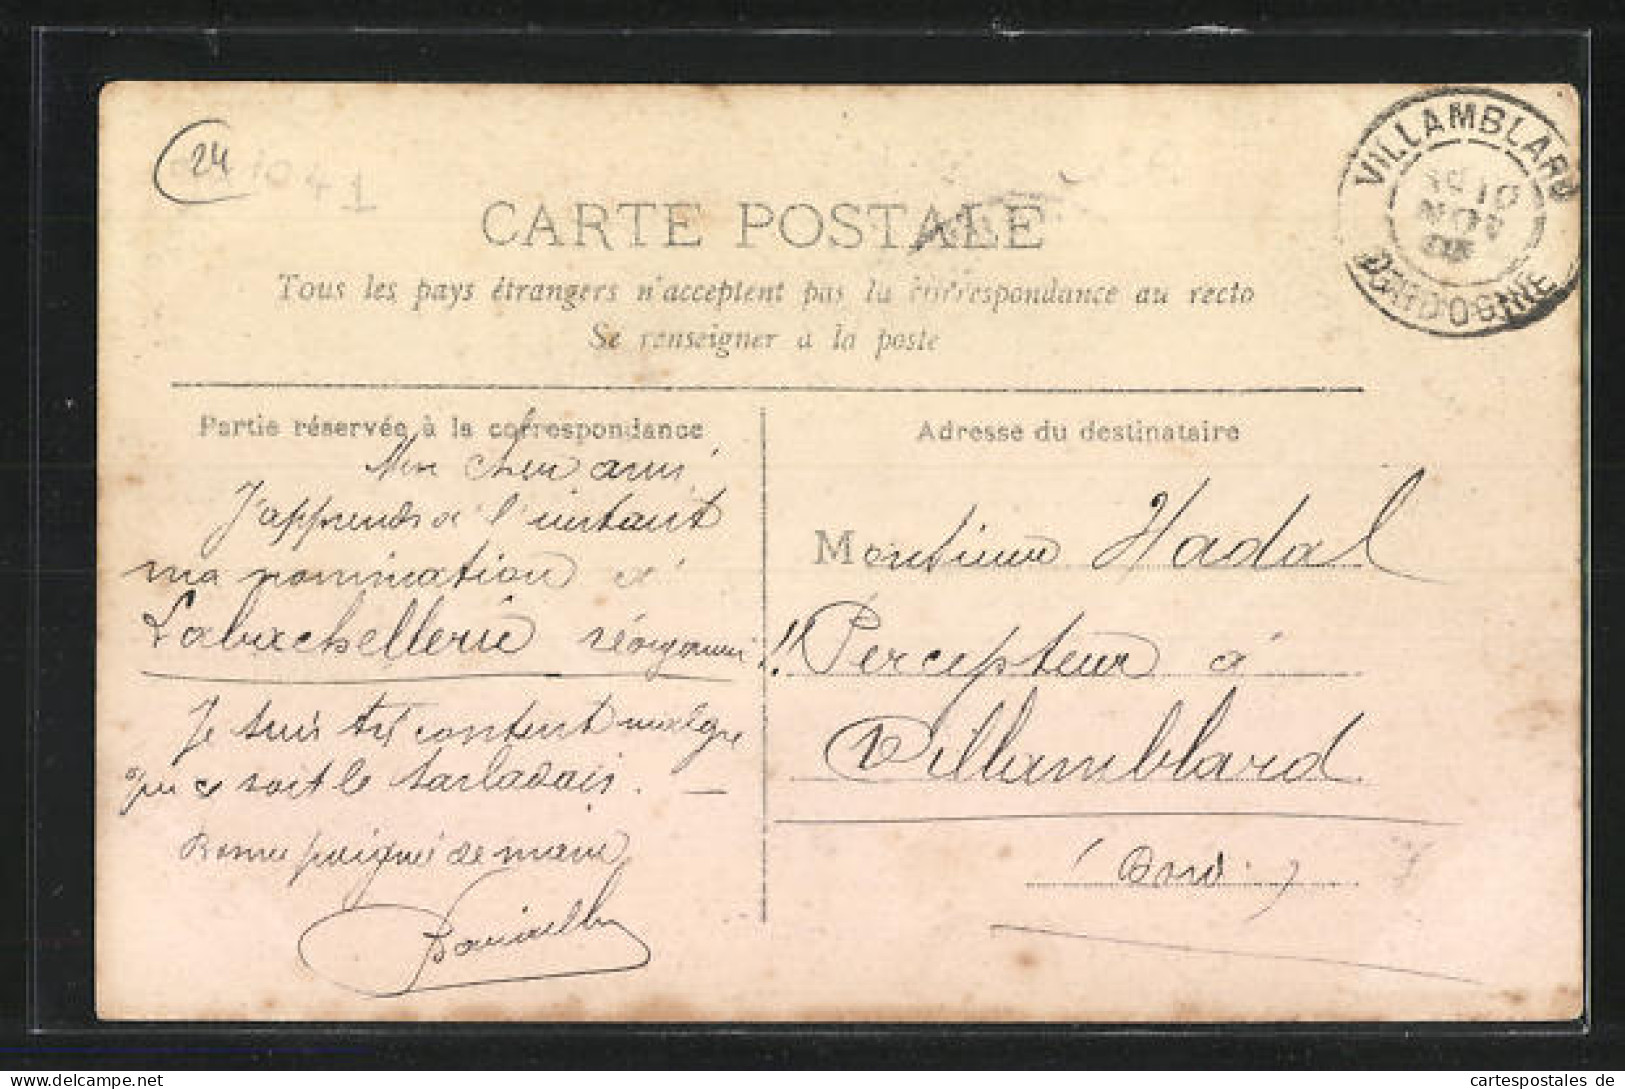 24
1041
CARTE POSTALE
Tous les pays étrangers n'acceptent pas la correspondance au recto
Se renseigner à la poste
VILLAMBLARD
10
NOV
DORDOGNE
Partie réservée à la correspondance
Mon cher ami,
J'apprends à l'instant
ma nomination à
Labachellerie
Je suis très content malgré
que ce soit le sarladais. —
Bonne poignée de main
Adresse du destinataire
Monsieur Nadal
!! Percepteur à
Villamblard
(Dord.)
cartespostales de